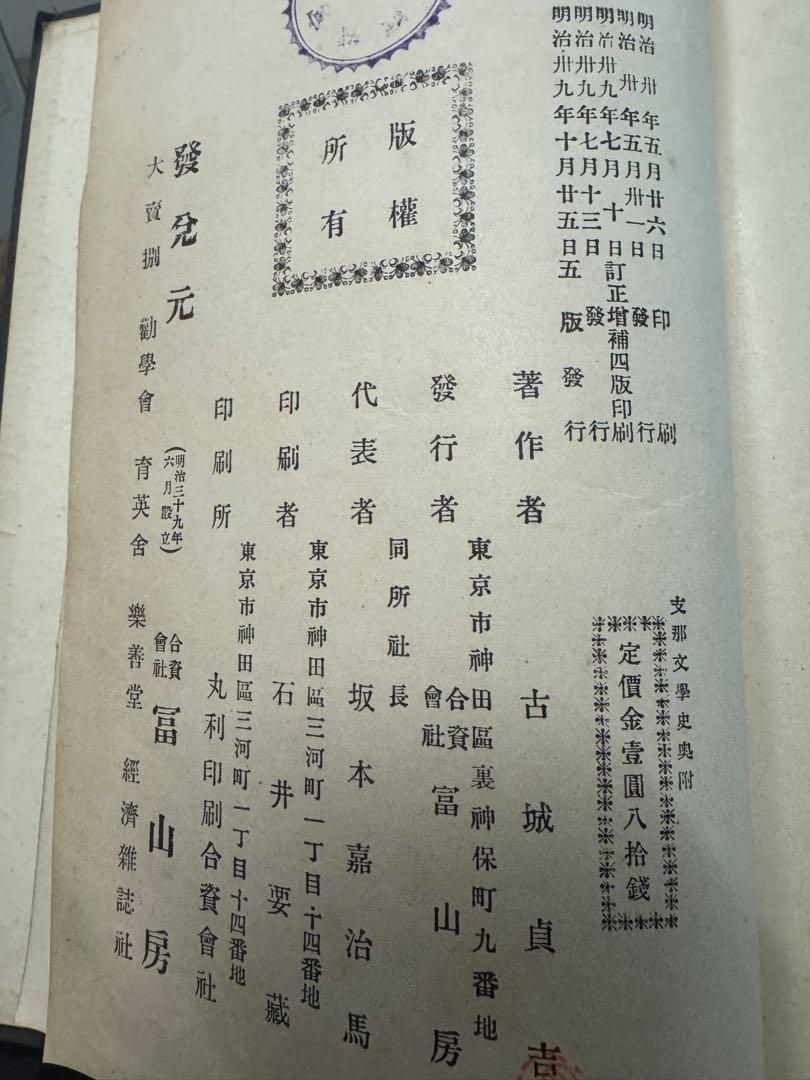 支那文學史奥附
定價金壹圓八拾錢
明治卅年五月廿六日印刷
明治卅年五月卅一日發行
明治卅九年七月十日訂正增補四版印刷
明治卅九年七月十三日發行
明治卅九年十月廿五日五版發行
版權
所有
著作者 古城貞吉
東京市神田區裏神保町九番地
發行者 合資會社 富山房
同所社長
代表者 坂本嘉治馬
東京市神田區三河町一丁目十四番地
印刷者 石井要藏
東京市神田區三河町一丁目十四番地
印刷所 丸利印刷合資會社
發兌元 (明治三十九年六月設立) 合資會社 冨山房
大賣捌 勸學會 育英舍 樂善堂 經濟雜誌社